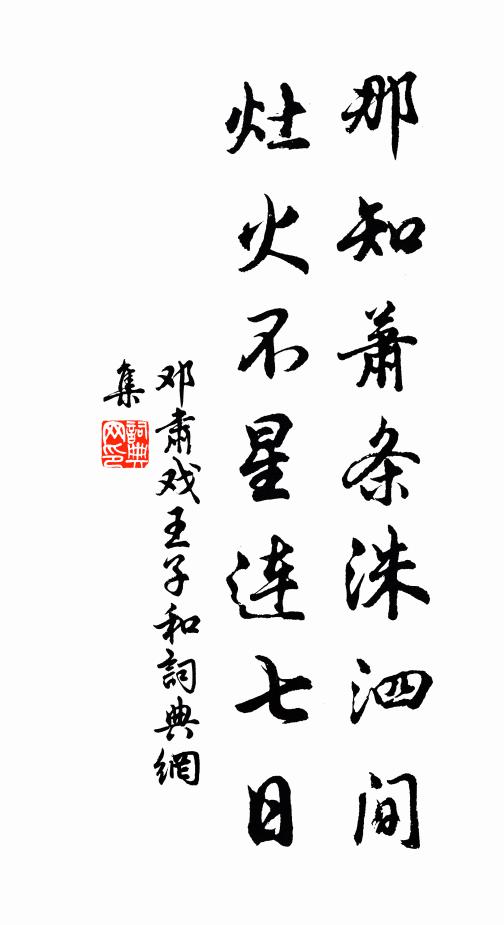 那知萧条洙泗间
灶火不星连七日
邓肃戏王子和詞典網
集
詞典
网印